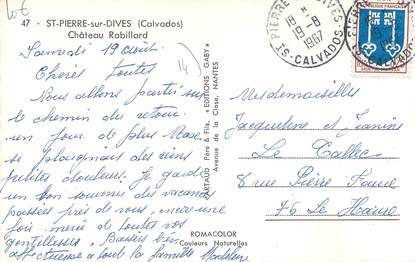 47 - ST-PIERRE-sur-DIVES (Calvados)
Château Robillard
Samedi 19 août.
Chères toutes
Nous allons partir sur
le chemin des retour.
un jour de plus
se plaignait des reins
petites douleurs. Je garde
un bon sommes des vacances
passées près de vous, encore une
fois merci de toutes vos
gentillesses. Baisers bien
affectueux à toute la famille
ARTAUD Père & Fils, EDITIONS GABY
Avenue de la Gare, NANTES
ROMACOLOR
Couleurs Naturelles
ST PIERRE DIVES
18 H
19-8
1967
CALVADOS
REPUBLIQUE FRANÇAISE
Mesdemoiselles
Jacqueline et Janine
Le
8 rue Pierre
75 Le Havre